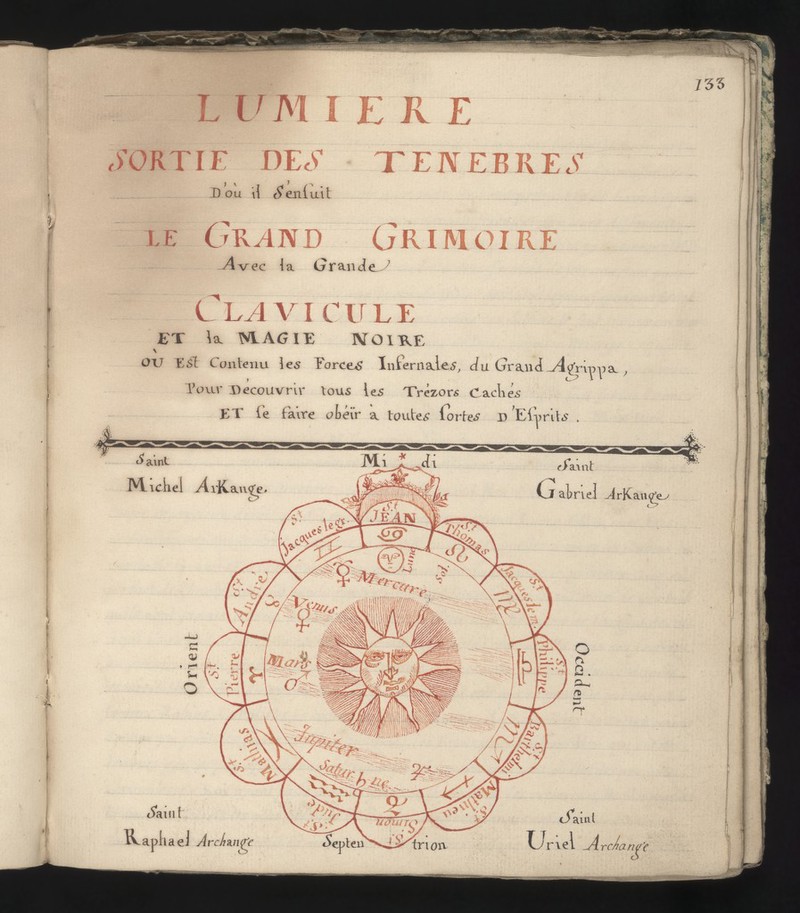 133
LUMIERE
SORTIE DES TENEBRES
D'où il S'ensuit
LE GRAND GRIMOIRE
Avec la Grande
CLAVICULE
ET la MAGIE NOIRE
OÙ EST Contenu les Forces Infernales, du Grand Agrippa,
Pour Découvrir tous les Trézors Cachés
ET se faire obéir a toutes sortes D'Esprits.
Saint
Michel ArKange.
Mi di
Saint
Gabriel ArKange
St JEAN
St Jacques le gr.
St Thomas
St André
St Jacques le m.
St Pierre
St Philippe
St Mathias
St Barthelmi
St Jude
St Simon
St Mathieu
♊ ♋ ♌
♉ ♍
♈ ♎
♓ ♏
♒ ♐
Lune
Sol
☿ Mercure
Venus ♀
Mars ♂
Jupiter ♃
Satur ♄ ne
Orient
Occident
Saint
Raphael Archange
Septen trion
Saint
Uriel Archange